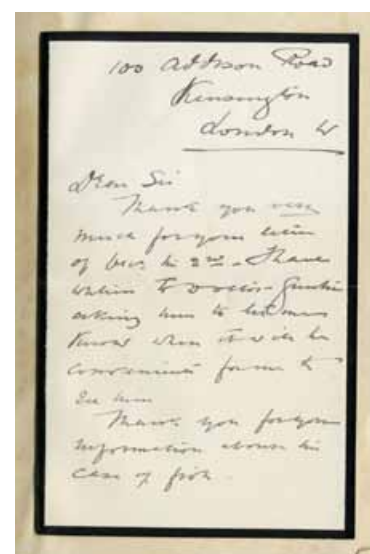 100 Addison Road
Kensington
London W
Dear Sir
Thank you very
much for your letter
of Decr the 2nd. I have
written to Doctor Günther
asking him to let me
know when it will be
convenient for me to
see him
Thank you for your
information about the
case of fish.